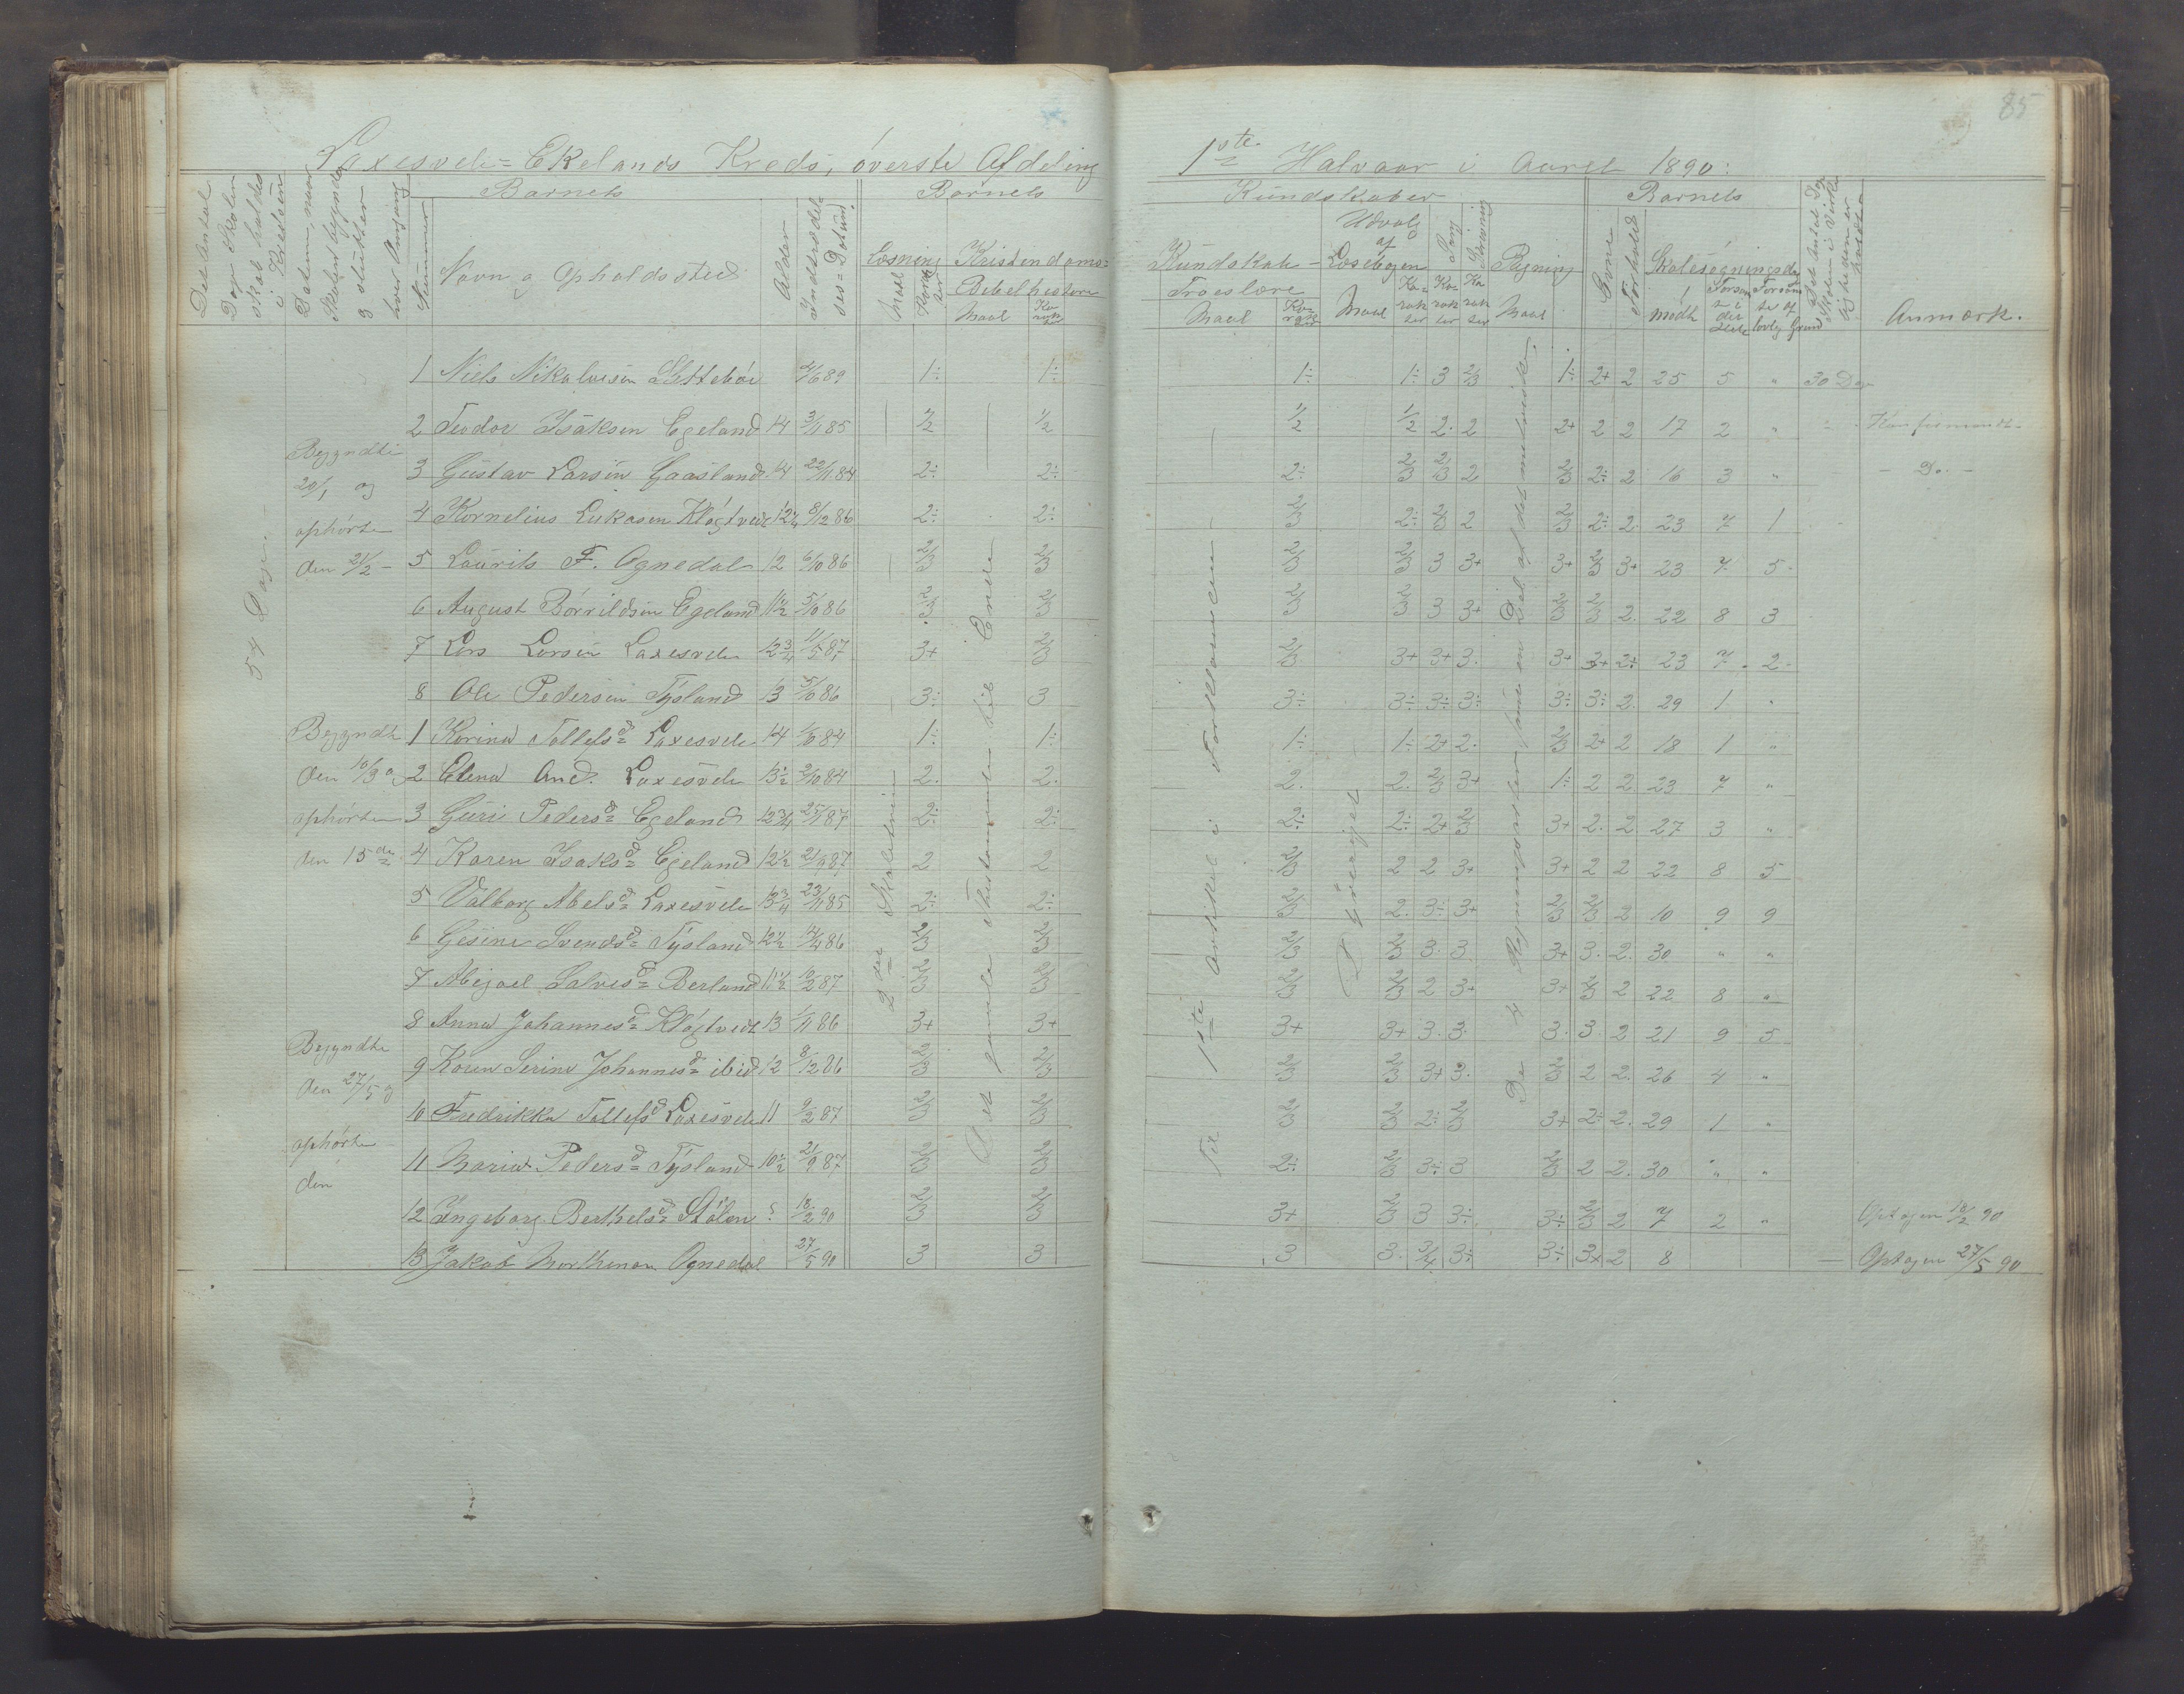 85
Laxesvele = Ekelands Kreds, överste Afdeling
1ste Halvaar i Aaret 1890:
Det Antal Dage Skolen skal holdes i Kredsen
Datum, naar Skolen begynder & slutter hver Omgang
Nummer
Barnets
Navn og Opholdssted
Alder
Indtrædelses = Datum
Barnets
Læsning
Maal
Karakter
Kristendoms =
Bibelhistorie
Maal
Karakter
Kundskaber
Kundskab -
Troeslære
Maal
Karakter
Udvalg af Læsebogen
Maal
Karakter
Sang
Karakter
Skrivning
Karakter
Regning
Maal
Barnets
Evner
Forhold
Skolesøgningsdage
mødt
Forsømte i det Hele
Forsømte af lovlig Grund
Det Antal Dage Skolen i Virkeligheden er holdt
Anmærk.
54 Dage
Begyndte 20/1 og ophørte den 21/2 -
Begyndte den 10/3 og ophørte den 15de
Begyndte den 27/5 og ophørte den
2det Skoletrin
Det gamle Testamente til Ende
Til 1ste Artikel i Forklaringen
D
De 4 Regningsarter samt en Del af det
1 Niels Nikolaisen 4/6 89 1÷ 1÷ 1÷ 1÷ 3 2/3 1÷ 2+ 2 25 5 " 30 Dage
2 Teodor Isaksen Egeland 14 3/11 85 1/2 1/2 1/2 1/2 2. 2 2+ 2 2 17 2 " Konfirmandt -
3 Gustav Larsen Gaasland 14 22/11 84 2÷ 2÷ 2÷ 2/3 2/3 2 2/3 2÷ 2 16 3 " - Do. -
4 Kornelius Lukasen Kløgtvedt 12 1/4 8/12 86 2÷ 2÷ 2/3 2÷ 2/3 2 2/3 2÷ 2. 23 7 1
5 Laurits F. Ognedal 12 6/10 86 2/3 2/3 2/3 2/3 3 3+ 3+ 2/3 3+ 23 7 5
6 August Börrildsen Egeland 11 1/2 5/10 86 2/3 2/3 2/3 2/3 3 3+ 2/3 2/3 2. 22 8 3
7 Lars Larsen Laxesvele 12 3/4 11/5 87 3+ 2/3 2/3 3+ 3+ 3. 3+ 3+ 2÷ 23 7 2
8 Ole Pedersen Tysland 13 5/10 86 3÷ 3 3÷ 3÷ 3÷ 3÷ 3÷ 3÷ 2. 29 1 "
1 Korina Tollefsd Laxesvele 14 84 1÷ 1÷ 1÷ 1÷ 2+ 2. 2/3 2+ 2 18 1 "
2 Elena And. Laxesvele 13 1/2 2/10 84 2. 2. 2. 2. 2/3 3+ 1÷ 2 2 23 7 "
3 Guri Pedersd Egeland 12 3/4 25/1 87 2÷ 2÷ 2÷ 2÷ 2+ 2/3 3+ 2. 2 27 3 "
4 Karen Isaksd Egeland 12 1/2 21/9 87 2 2 2/3 2 2 3+ 3+ 2 2 22 8 5
5 Valborg Abelsd Laxesvele 13 3/4 23/11 85 2÷ 2÷ 2/3 2. 3÷ 3+ 2/3 2/3 2 10 9 9
6 Gesine Svendsd Tysland 12 1/2 4/4 86 2/3 2/3 2/3 2/3 3. 3. 3+ 3. 2. 30 " "
7 Abigael Salvesd Berland 11 1/2 10/2 87 2/3 2/3 2/3 2/3 2 3+ 3+ 2/3 2 22 8 "
8 Anna Johannesd Kløgtvedt 13 /11 86 3+ 3+ 3+ 3+ 3. 3. 3. 3. 2 21 9 5
9 Karen Serine Johannesd ibid 12 8/12 86 2/3 2/3 2/3 2/3 3+ 3. 2/3 2 2. 26 4 "
10 Fredrikka Tollefsd Laxesvele 11 9/2 87 2/3 2/3 2/3 2/3 2÷ 2/3 3+ 2÷ 2. 29 1 "
11 Maria Pedersd Tysland 10 1/2 21/9 87 2/3 2/3 2÷ 2/3 3÷ 3 2/3 2 2. 30 " "
12 Ingeborg Berthelsd Stölen ? 18/2 90 2/3 2/3 3+ 2/3 3 3÷ 3÷ 2/3 2 7 2 " Optagen 18/2 90
13 Jakob Morthenson Ognedal 27/5 90 3 3 3 3. 3/4 3÷ 3÷ 3+ 2 8 - Optagen 27/5 90